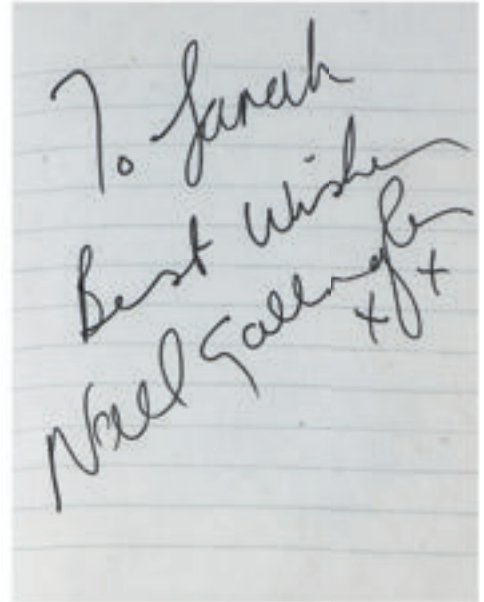 To Sarah
Best Wishes
Noel Gallagher
x x